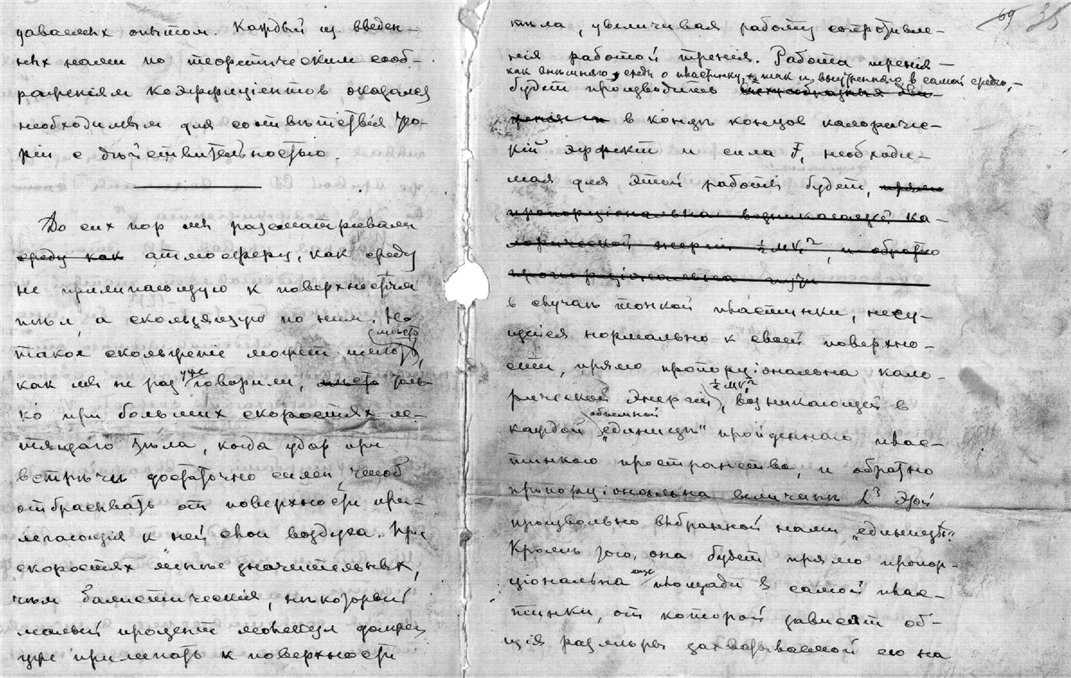 даваемых опытом. Каждый из введен-
ных нами по теоретическим сооб-
раженіям коэффиціентов оказался
необходимым для соответствія тео-
ріи с действительностью.
До сих пор мы рассматривали
среду как атмосферу, как среду
не прилипающую к поверхностям
тел, а скользящую по ним. Но
такое скольжение может иметь место,
как мы не раз уже говорили, толь-
ко при больших скоростях ле-
тящаго тела, когда удар при
встрече достаточно силен, чтоб
отбрасывать от поверхности при-
легающія к ней слои воздуха. При
скоростях менее значительных,
чем баллистическія, некоторый
малый процент молекул должен
уже прилипать к поверхности
69
тела, увеличивая работу сопротивле-
нія работой тренія. Работа тренія
как внешняго среды о пластинку, так и внутренняго в самой среде,
будет производить
в конце концов калориче-
скій эффект и сила F, необходи-
мая для этой работы будет, прямо
пропорціональна возникающей ка-
лорической энергіи ½MV², и обратно
пропорціональна
в случае тонкой пластинки, несу-
щейся нормально к своей поверхно-
сти, прямо пропорціональна кало-
рической энергіи ½MV², возникающей в
каждой объемной „единице“ пройденнаго плас-
тинкою пространства, и обратно
пропорціональна величине L³ этой
произвольно выбранной нами „единицы“.
Кроме того, она будет прямо пропор-
ціональна еще площади S самой плас-
тинки, от которой зависят об-
щія размеры захватываемой ею на